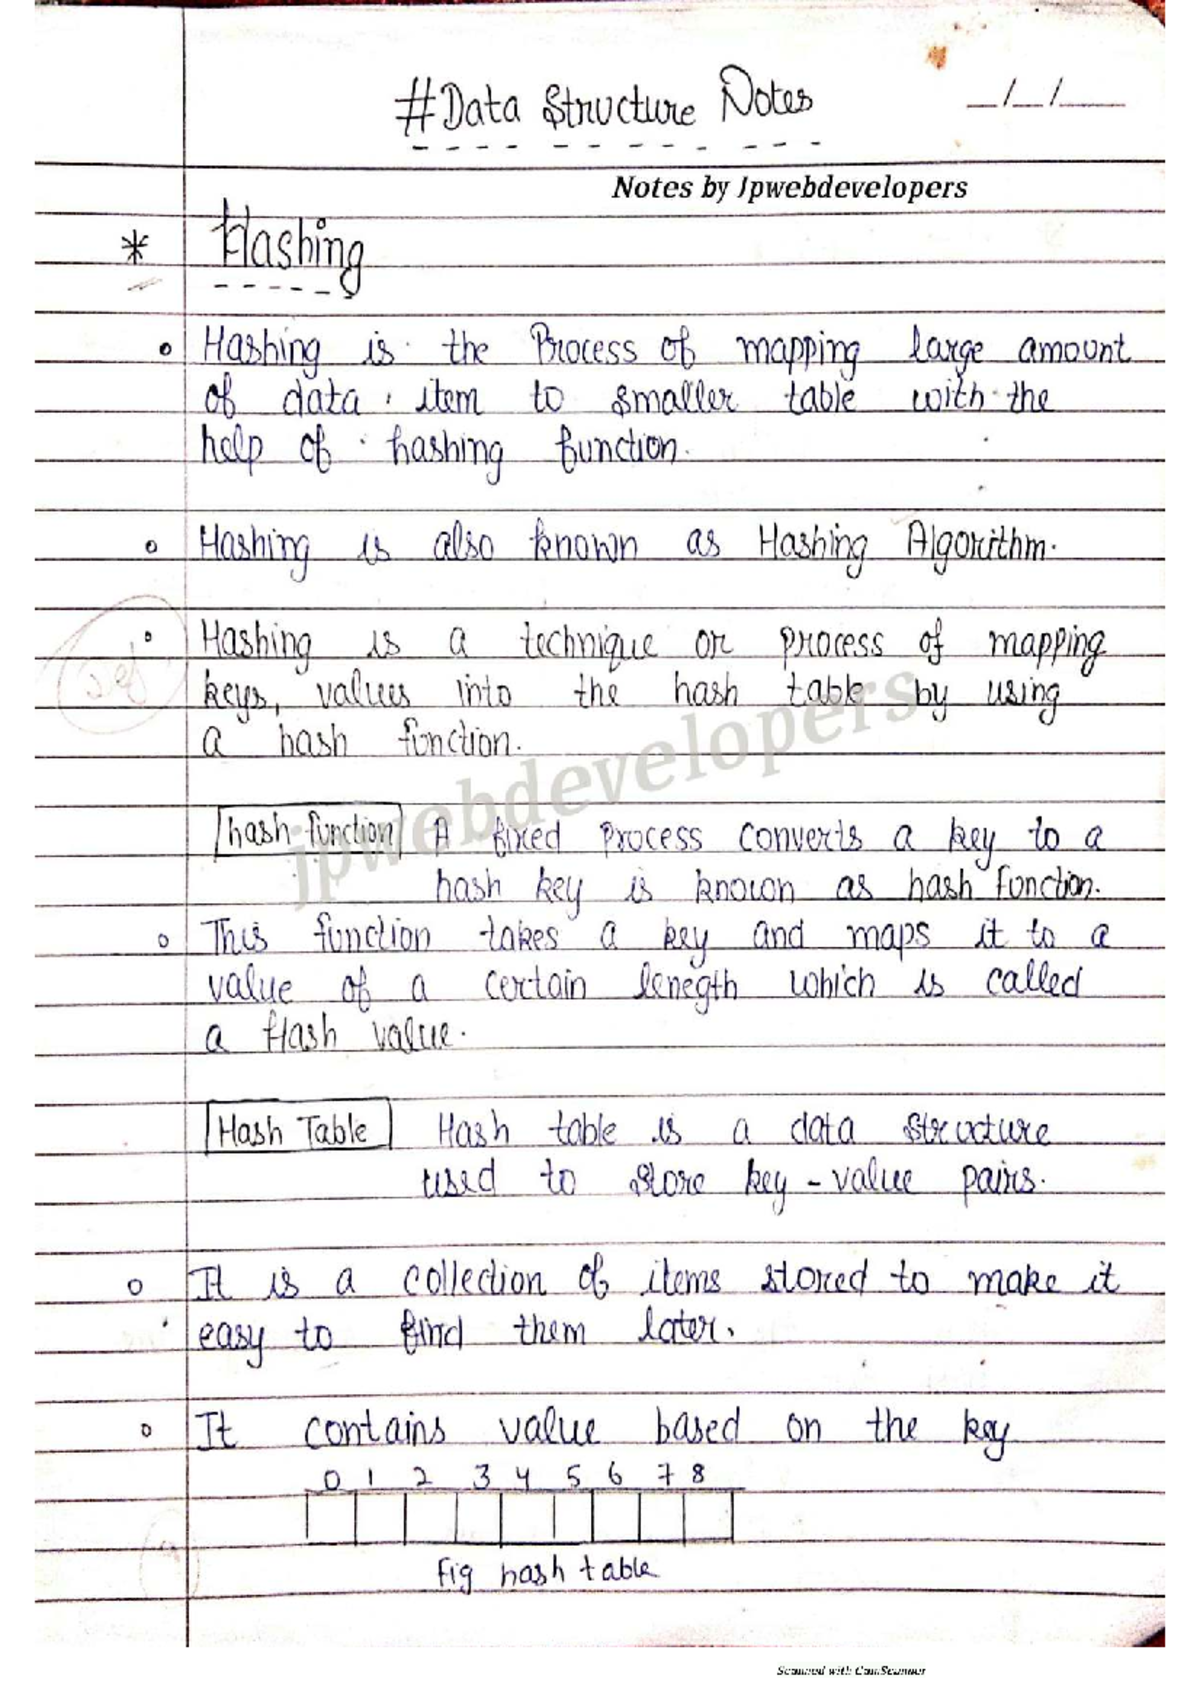 #Data Structure Notes
_/_/_
Notes by Jpwebdevelopers
* Hashing
o Hashing is the Process of mapping large amount
of data item to smaller table with the
help of hashing function.
o Hashing is also known as Hashing Algorithm.
o Hashing is a technique or process of mapping
keys, values into the hash table by using
a hash function.
jpwebdevelopers
hash function A fixed process converts a key to a
hash key is known as hash function.
o This function takes a key and maps it to a
value of a certain lenegth which is called
a Hash value.
Hash Table Hash table is a data structure
used to store key - value pairs.
o It is a collection of items stored to make it
easy to find them later.
o It contains value based on the key
0 1 2 3 4 5 6 7 8
Fig hash table
Scanned with CamScanner